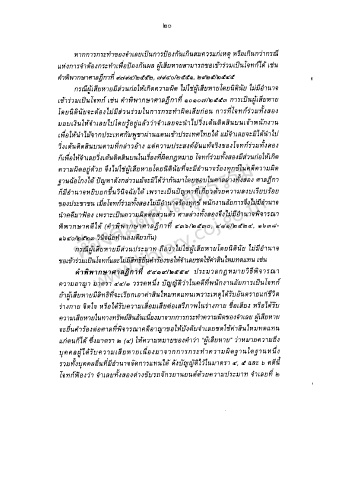 ๒๐
หากการกระทำของจำเลยเป็นการป้องกันเกินสมควรแก่เหตุ หรือเกินกว่ากรณี
แห่งการจำต้องกระทำเพื่อป้องกันผล ผู้เสียหายสามารถขอเข้าร่วมเป็นโจทก์ได้ เช่น
คำพิพากษาฎีกาที่
กรณีผู้เสียหายมีส่วนก่อให้เกิดความผิด ไม่ใช่ผู้เสียหายโดยนิตินัย ไม่มีอำนาจ
เข้าร่วมเป็นโจทก์ เช่น คำพิพากษาฎีกาที่ การเป็นผู้เสียหาย
โดยนิตินัยจะต้องไม่มีส่วนร่วมในการกระทำผิดเสียก่อน การที่โจทก์ร่วมทั้งสอง
มอบเงินให้จำเลยไปโดยรู้อยู่แล้วว่าจำเลยจะนำไปวิ่งเต้นติดสินบนเจ้าพนักงาน
เพื่อให้นำไม้จากประเทศกัมพูชาผ่านแดนเข้าประเทศไทยได้ แม้จำเลยจะมิได้นำไป
วิ่งเต้นติดสินบนตามที่กล่าวอ้าง แต่ความประสงค์อันแท้จริงของโจทก์ร่วมทั้งสอง
ก็เพื่อให้จำเลยวิ่งเต้นติดสินบนในเรื่องที่ผิดกฎหมาย โจทก์ร่วมทั้งสองมีส่วนก่อให้เกิด
ความผิดอยู่ด้วย จึงไม่ใช่ผู้เสียหายโดยนิตินัยที่จะมีอำนาจร้องทุกข์ในคดีความผิด
ฐานฉ้อโกงได้ ปัญหาดังกล่าวแม้จะมิได้ว่ากันมาโดยชอบในศาลล่างทั้งสอง ศาลฎีกา
ก็มีอำนาจหยิบยกขึ้นวินิจฉัยได้ เพราะเป็นปัญหาที่เกี่ยวด้วยความสงบเรียบร้อย
ของประชาชน เมื่อโจทก์ร่วมทั้งสองไม่มีอำนาจร้องทุกข์ พนักงานอัยการจึงไม่มีอำนาจ
นำคดีมาฟ้อง เพราะเป็นความผิดต่อส่วนตัว ศาลล่างทั้งสองจึงไม่มีอำนาจพิจารณา
พิพากษาคดีได้ (คำพิพากษาฎีกาที่
วินิจฉัยทำนองเดียวกัน)
กรณีผู้เสียหายมีส่วนประมาท ถือว่าไม่ใช่ผู้เสียหายโดยนิตินัย ไม่มีอำนาจ
ขอเข้าร่วมเป็นโจทก์และไม่มีสิทธิยื่นคำร้องขอให้จำเลยชดใช้ค่าสินไหมทดแทน เช่น
คำพิพากษาฎีกาที่ ประมวลกฎหมายวิธีพิจารณา
ความอาญา มาตรา ๔๔/๑ วรรคหนึ่ง บัญญัติว่าในคดีที่พนักงานอัยการเป็นโจทก์
ถ้าผู้เสียหายมีสิทธิที่จะเรียกเอาค่าสินไหมทดแทนเพราะเหตุได้รับอันตรายแก่ชีวิต
ร่างกาย จิตใจ หรือได้รับความเสื่อมเสียต่อเสรีภาพในร่างกาย ชื่อเสียง หรือได้รับ
ความเสียหายในทางทรัพย์สินอันเนื่องมาจากการกระทำความผิดของจำเลย ผู้เสียหาย
จะยื่นคำร้องต่อศาลที่พิจารณาคดีอาญาขอให้บังคับจำเลยชดใช้ค่าสินไหมทดแทน
แก่ตนก็ได้ ซึ่งมาตรา ๒ (๔) ให้ความหมายของคำว่า "ผู้เสียหาย" ว่าหมายความถึง
บุคคลผู้ได้รับความเสียหายเนื่องจากการกระทำความผิดฐานใดฐานหนึ่ง
รวมทั้งบุคคลอื่นที่มีอำนาจจัดการแทนได้ ดังบัญญัติไว้ในมาตรา ๔, ๕ และ ๖ คดีนี้
โจทก์ฟ้องว่า จำเลยทั้งสองต่างขับรถจักรยานยนต์ด้วยความประมาท จำเลยที่ ๒